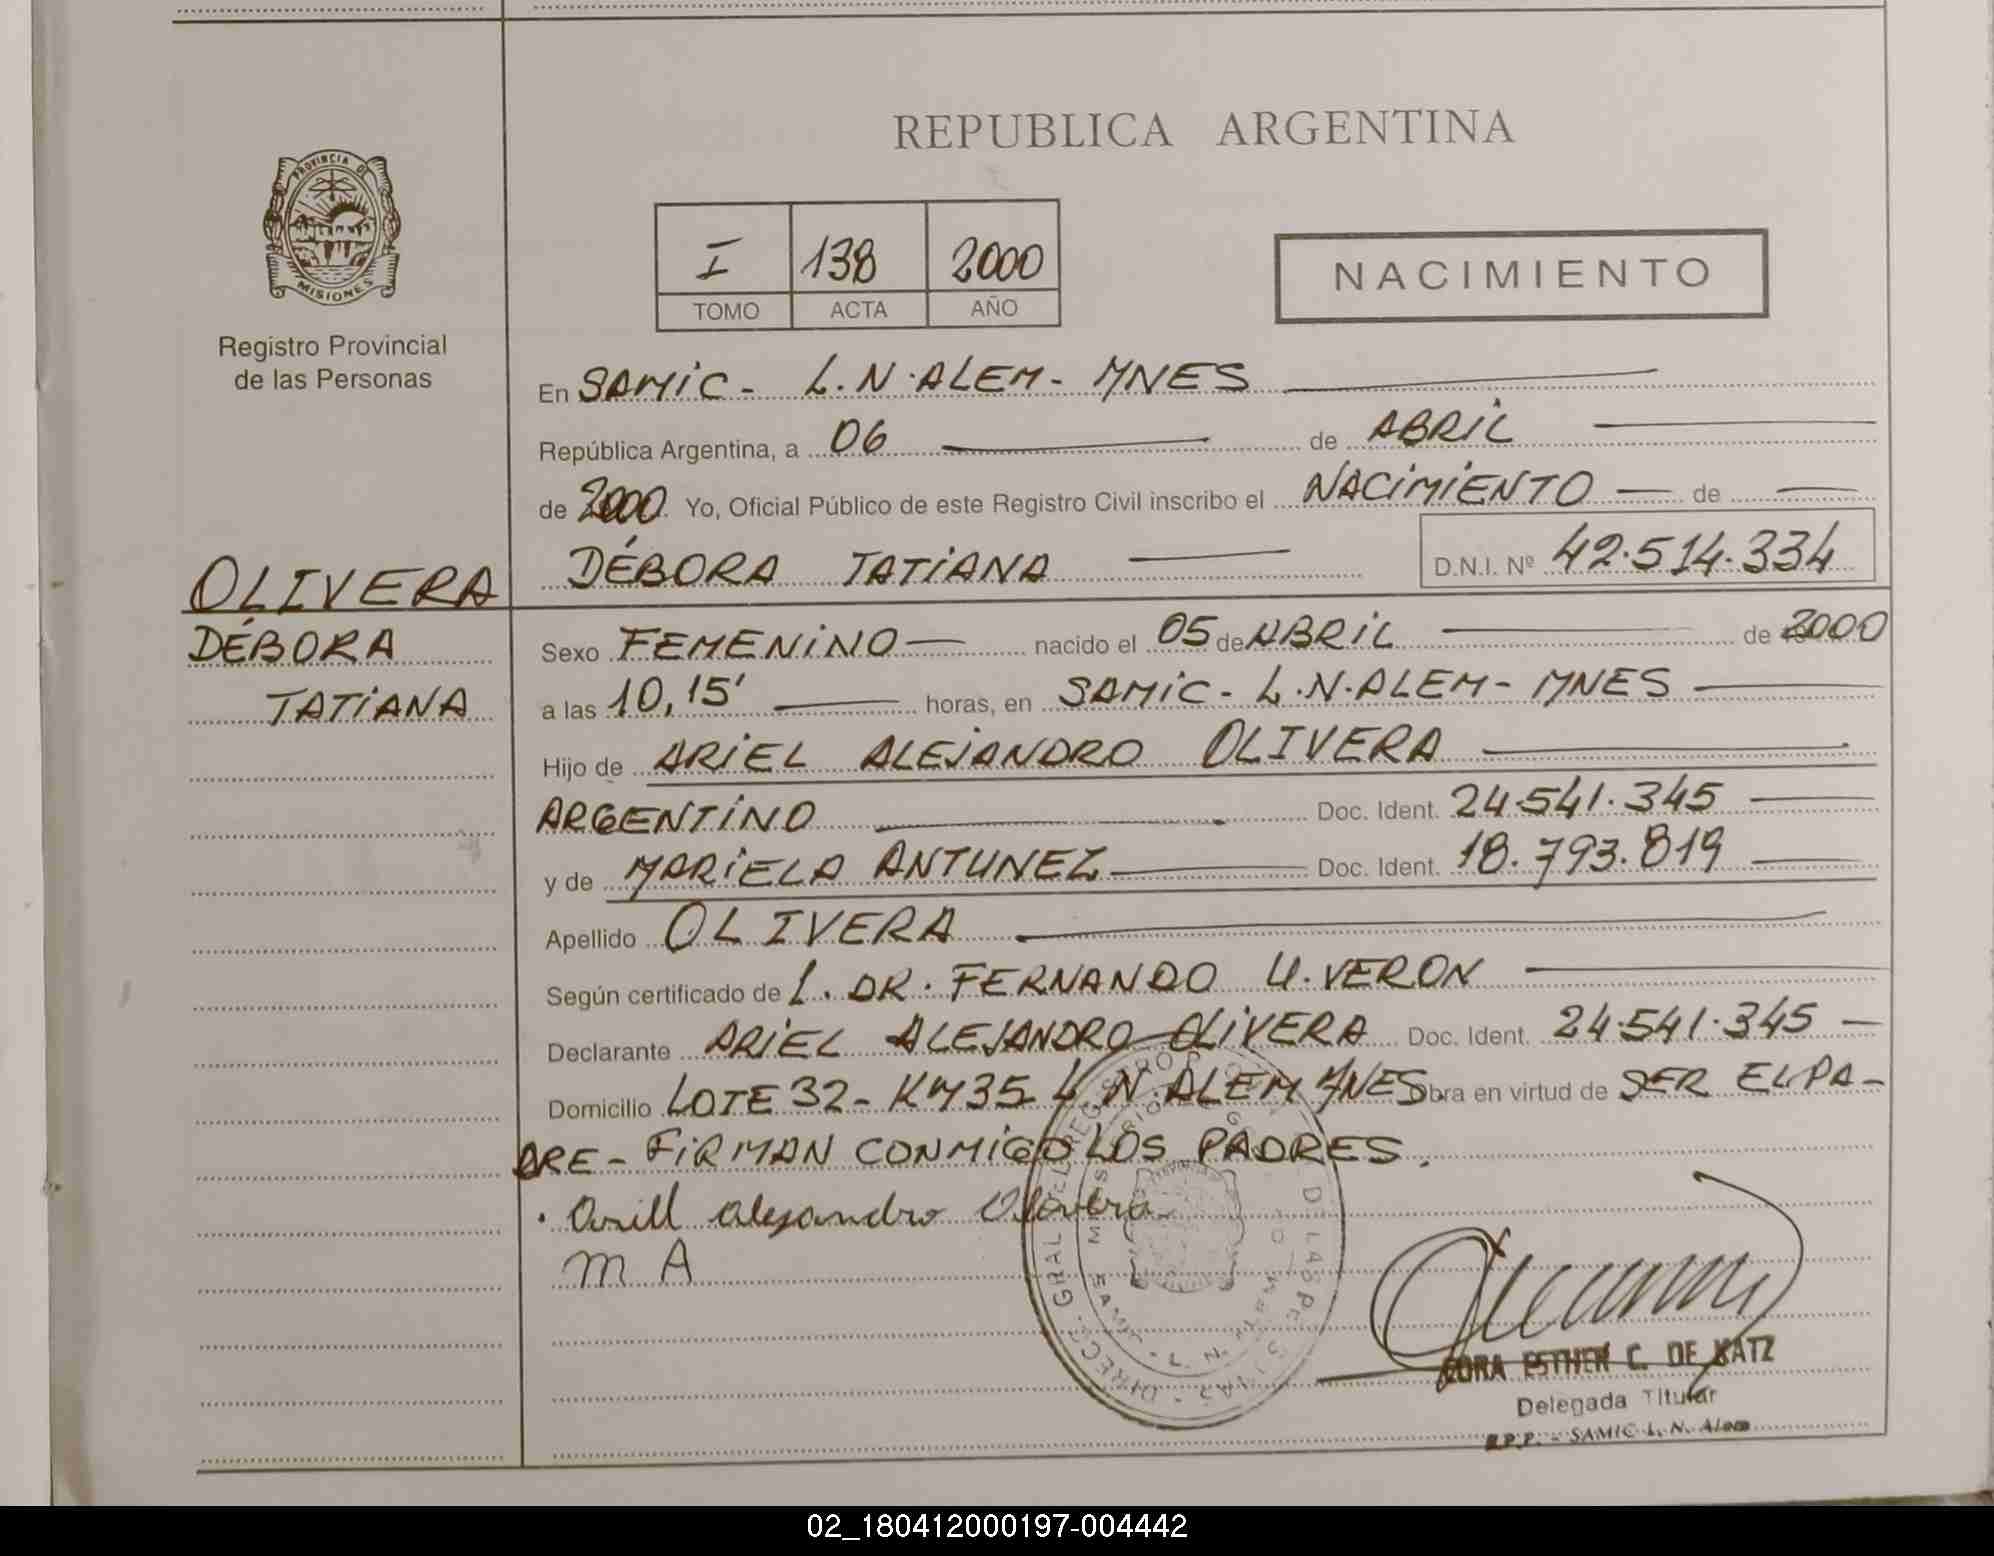 REPUBLICA ARGENTINA
PROVINCIA DE
MISIONES
Registro Provincial
de las Personas
I 138 2000
TOMO ACTA AÑO
NACIMIENTO
En SAMIC - L.N.ALEM - MNES
República Argentina, a 06 de ABRIL
de 2000 Yo, Oficial Público de este Registro Civil inscribo el NACIMIENTO de
DÉBORA TATIANA D.N.I. Nº 42.514.334
OLIVERA
DÉBORA
TATIANA
Sexo FEMENINO nacido el 05 de ABRIL de 2000
a las 10,15' horas, en SAMIC - L.N.ALEM - MNES
Hijo de ARIEL ALEJANDRO OLIVERA
ARGENTINO Doc. Ident. 24.541.345
y de MARIELA ANTUNEZ Doc. Ident. 18.793.819
Apellido OLIVERA
Según certificado de L. DR. FERNANDO U. VERON
Declarante ARIEL ALEJANDRO OLIVERA Doc. Ident. 24.541.345
Domicilio LOTE 32 - KM 35 L N.ALEM MNES Obra en virtud de SER EL PA-
DRE - FIRMAN CONMIGO LOS PADRES.
Alejandro Olivera
M A
ESTHER C. DE KATZ
Delegada Titular
R.P.P. - SAMIC L. N. Alem
02_180412000197-004442